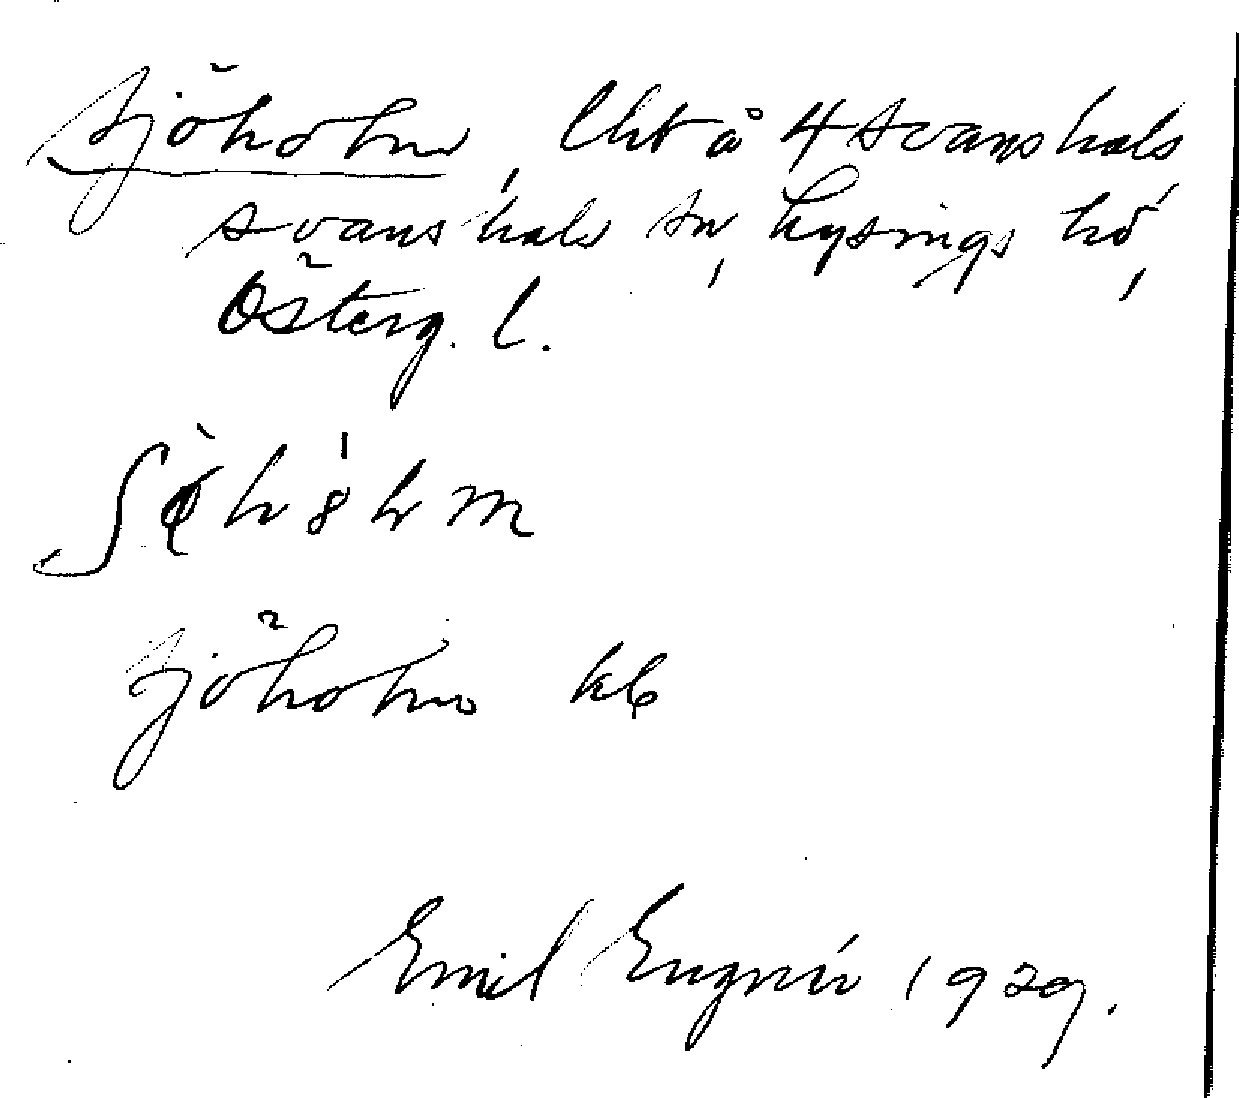 Sjöholm, lht å 4 Svanshals
Svanshals sn, Lysings hd,
Österg. l.
Sjöholm kb
Emil Engnér 1929.